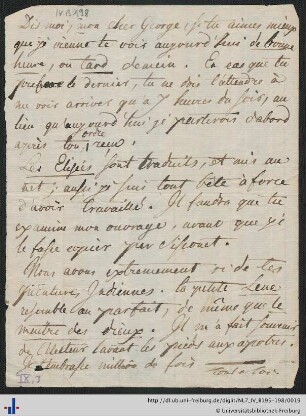 IV B 198
Dis moi, mon cher George, si tu aimes mieux
que je vienne te voir aujourd'hui de bonne
heure, ou tard demain. En cas que tu
préfères le dernier, tu ne dois t'attendre à
me voir arriver qu'à 7 heures du soir, au
lieu qu'aujourd'hui je partirois d'abord
après ton reçu.
ordre
Les Elisées sont traduits, et mis au
net; aussi je suis tout bête à force
d'avoir travaillé. Il faudra que tu
examine mon ouvrage, avant que je
le fasse copier par
Nous avons extremement ri de tes
peintures Indiennes. la petite Lene
resemble au parfait, de même que le
meutre des Dieux. Il m'a fait souvenir
de l'Electeur lavant les pieds aux apotres.
Je t'embrasse million de fois
tout à toi.
IX,3
http://dl.ub.uni-freiburg.de/diglit/NL7_IV_B195-198/0019
© Universitätsbibliothek Freiburg